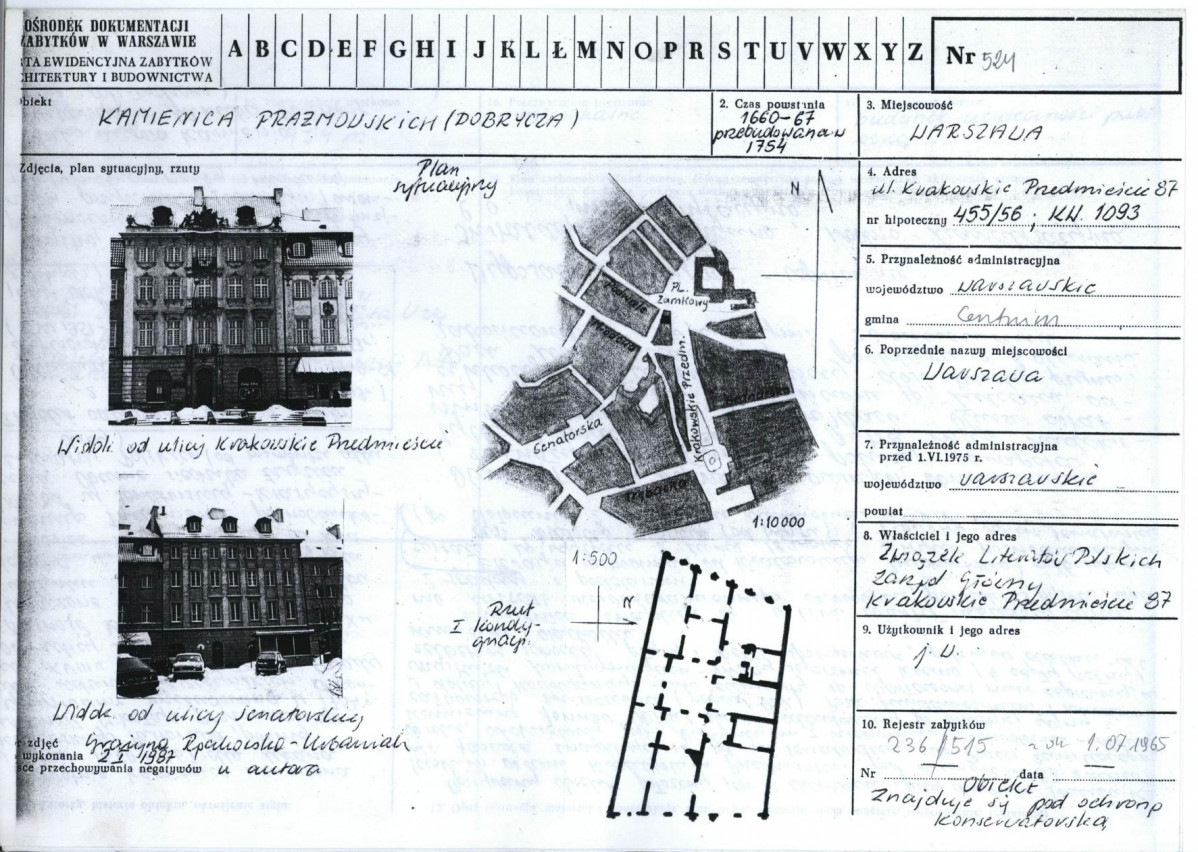 OŚRODEK DOKUMENTACJI
ZABYTKÓW W WARSZAWIE
TA EWIDENCYJNA ZABYTKÓW
HITEKTURY I BUDOWNICTWA
A B C D E F G H I J K L Ł M N O P R S T U V W X Y Z
Nr 524
biekt
KAMIENICA PRAŻMOWSKICH (DOBRYCZA)
2. Czas powstania
1660-67
przebudowana w
1754
3. Miejscowość
WARSZAWA
Zdjęcia, plan sytuacyjny, rzuty
Plan
sytuacyjny
N
PL.
Zamkowy
Podwale
Miodowa
Senatorska
Krakowskie Przedm.
Bednarska
Trębacka
1:10000
Widok od ulicy Krakowskie Przedmieście
1:500
N
Rzut
I kondy-
gnacji
Widok od ulicy Senatorskiej
zdjęć Grażyna Rpałkowska Urbaniak
wykonania 2 I 1987
sce przechowywania negatywów u autora
4. Adres
ul. Krakowskie Przedmieście 87
nr hipoteczny 455/56; KW. 1093
5. Przynależność administracyjna
województwo warszawskie
gmina Centrum
6. Poprzednie nazwy miejscowości
Warszawa
7. Przynależność administracyjna
przed 1.VI.1975 r.
województwo warszawskie
powiat
8. Właściciel i jego adres
Związek Literatów Polskich
Zarząd Główny
Krakowskie Przedmieście 87
9. Użytkownik i jego adres
j.w.
10. Rejestr zabytków
236/515 1.07.1965
Nr data
Obiekt
znajduje się pod ochroną
konserwatorską